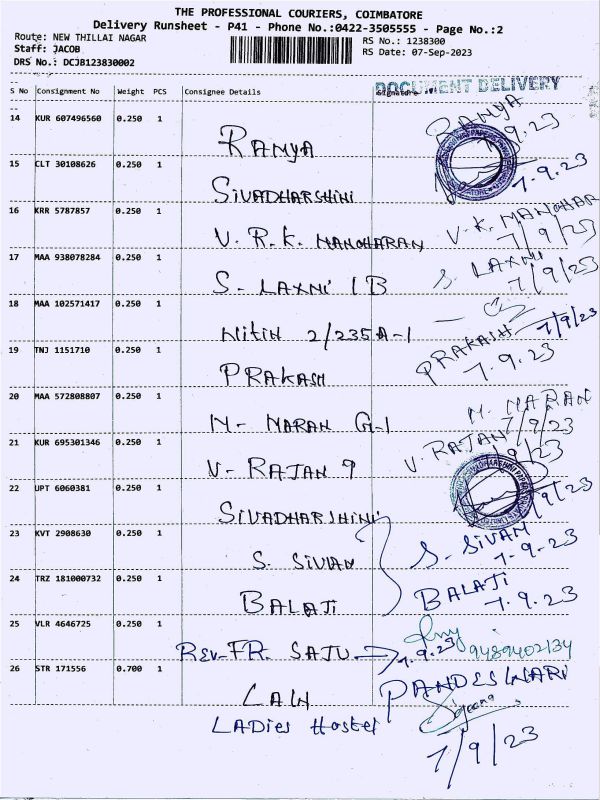 THE PROFESSIONAL COURIERS, COIMBATORE
Delivery Runsheet - P41 - Phone No.:0422-3505555 - Page No.:2
Route: NEW THILLAI NAGAR
RS No.: 1238300
Staff: JACOB
RS Date: 07-Sep-2023
DRS No.: DCJB123830002
DOCUMENT DELIVERY
S No Consignment No Weight PCS Consignee Details Signature
14 KUR 607496560 0.250 1 RANYA RANYA 7.9.23
15 CLT 30108626 0.250 1 SIVADHARSHINI 7.9.23
16 KRR 5787857 0.250 1 V. R. K. MANOHARAN V.K. MANOHAR 7/9/23
17 MAA 938078284 0.250 1 S- LAXNI 1B S. LAXNI 7/9/23
18 MAA 102571417 0.250 1 Nitin 2/235A-1 7/9/23
19 TNJ 1151710 0.250 1 PRAKASH PRAKASH 7.9.23
20 MAA 572808807 0.250 1 M- NARAN G-1 M. NARAN 7/9/23
21 KUR 695301346 0.250 1 V- RAJAN 9 V. RAJAN 7/9/23
22 UPT 6060381 0.250 1 SIVADHARSHINI 7/9/23
23 KVT 2908630 0.250 1 S. SIVAN S- SIVAN 7-9-23
24 TRZ 181000732 0.250 1 BALAJI BALAJI 7.9.23
25 VLR 4646725 0.250 1 REV-FR. SAJU 7.9.23 9489402134
26 STR 171556 0.700 1 LAW PANDESWARI
LADIES Hostel
7/9/23